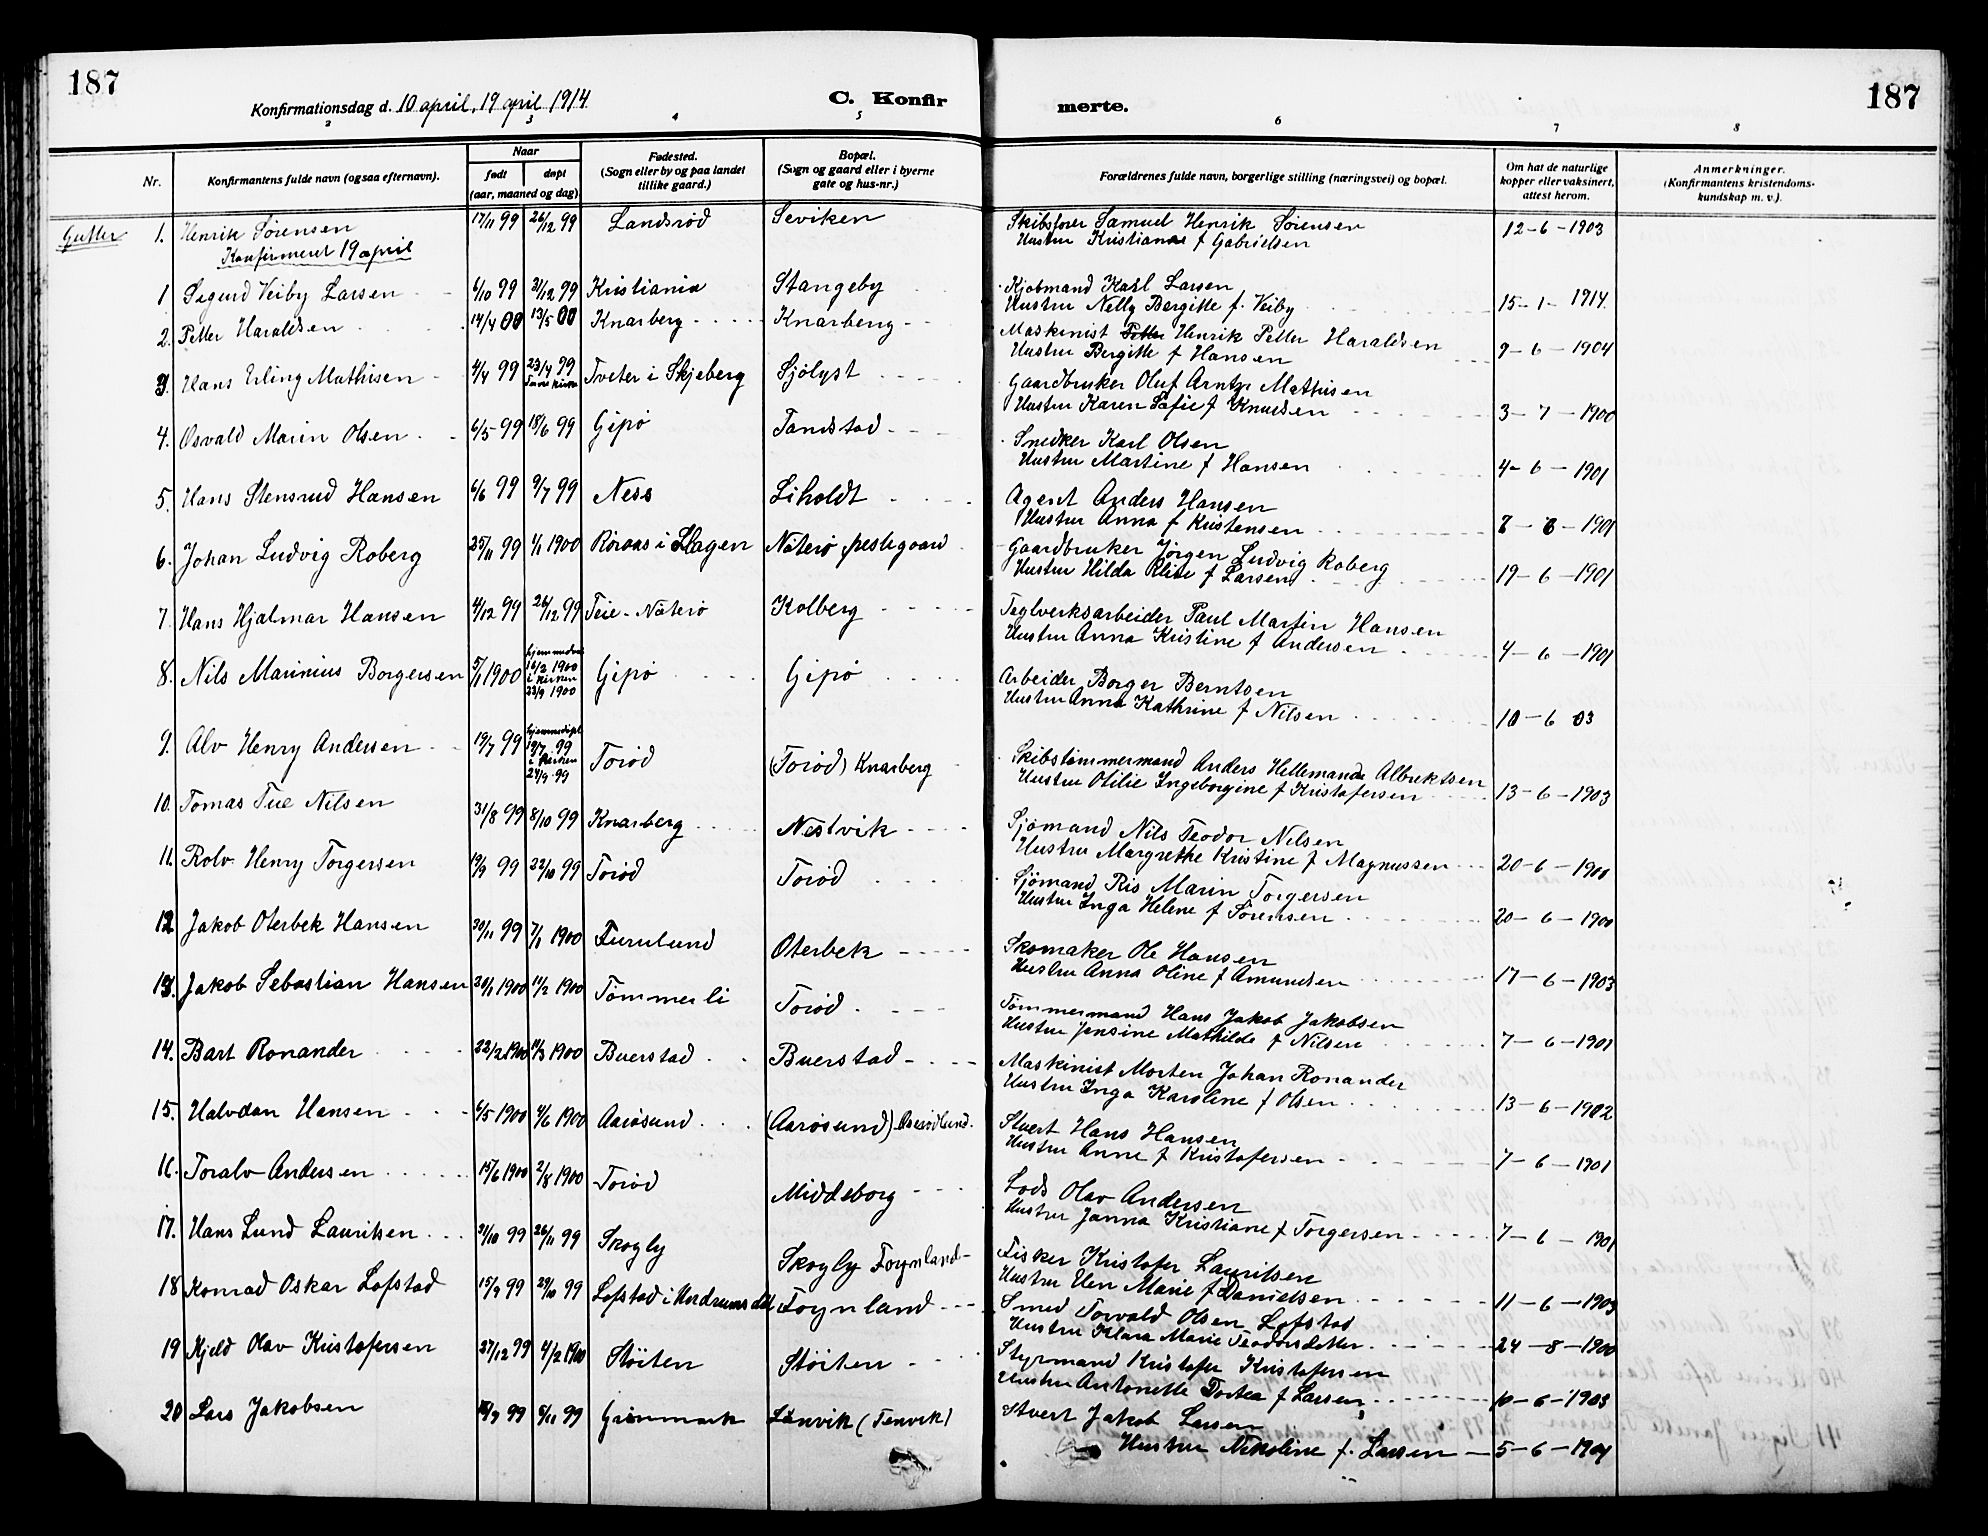 187
Konfirmationsdag d. 10 april, 19 april 1914
C. Konfir
merte.
187
2 3 4 5 6 7 8
Nr.
Konfirmantens fulde navn (ogsaa efternavn).
Naar
født døpt
(aar, maaned og dag)
Fødested.
(Sogn eller by og paa landet
tillike gaard.)
Bopæl.
(Sogn og gaard eller i byerne
gate og hus-nr.)
Forældrenes fulde navn, borgerlige stilling (næringsvei) og bopæl.
Om hat de naturlige
kopper eller vaksinert,
attest herom.
Anmerkninger.
(Konfirmantens kristendoms-
kundskap m. v.).
Gutter 1. Henrik Sørensen 17/11 99 26/12 99 Landsrød Seviken Skibsfører Samuel Henrik Sørensen 12-6-1903
Konfirmeret 19 april Hustru Kristiane f Gabrielsen
1 Sigurd Veiby Larsen 6/10 99 31/12 99 Kristiania Stangeby Kjøbmand Karl Larsen
Hustru Nelly Bergitte f. Veiby 15-1-1914
2. Petter Haraldsen 14/4 00 13/5 00 Knarberg Knarberg Maskinist Henrik Petter Haraldsen
Hustru Bergitte f Hansen 9-6-1904
3. Hans Erling Mathisen 4/4 99 23/4 99 Tveter i Skjeberg Sjölyst Gaardbruker Oluf Arntz Mathisen
Hustru Karen Sofie f Knudsen 3-7-1900
4. Osvald Marin Olsen 6/5 99 18/6 99 Gipø Tandstad Snedker Karl Olsen
Hustru Martine f Hansen 4-6-1901
5. Hans Stensrud Hansen 6/6 99 9/7 99 Ness Liholdt Agent Anders Hansen
Hustru Anna f Kristensen 1901
6. Johan Ludvig Roberg 25/11 99 1/1 1900 Roraas i Slagen Nøterø prestegaard Gaardbruker Jørgen Ludvig Roberg
Hustru Hilda Elise f Larsen 19-6-1901
7. Hans Hjalmar Hansen 4/12 99 26/12 99 Teie - Nøterø Kolberg Teglverksarbeider Paul Martin Hansen
Hustru Anna Kristine f Andersen 4-6-1901
8. Nils Marinius Borgersen 5/1 1900 hjemmedøpt 16/2 1900 i kirken 23/9 1900 Gipø Gipø Arbeider Borger Berntsen
Hustru Anna Kathrine f Nilsen 10-6 03
9. Alv Henry Andersen 19/7 99 hjemmedøpt 19/7 99 i kirken 24/9 99 Torød (Torød) Knarberg Skibstømmermand Anders Hellemande Albrektsen
Hustru Otilie Ingeborgine f Kristofersen 13-6-1903
10. Tomas Tue Nilsen 31/8 99 8/10 99 Knarberg Nestvik Sjömand Nils Teodor Nilsen
Hustru Margrethe Kristine f Magnussen 20-6-1900
11. Rolv Henry Torgersen 19/9 99 22/10 99 Torød Torød Sjömand Ris Marin Torgersen
Hustru Inga Helene f Sørensen 20-6-1900
12. Jakob Oterbek Hansen 30/11 99 7/1 1900 Furulund Oterbek Skomaker Ole Hansen
Hustru Anna Oline f Amundsen 17-6-1903
13. Jakob Sebastian Hansen 20/1 1900 11/2 1900 Tömmerli Torød Tömmermand Hans Jakob Jakobsen
Hustru Jensine Mathilde f Nilsen 7-6-1901
14. Bart Ronander 22/2 1900 11/3 1900 Buerstad Buerstad Maskinist Morten Johan Ronander
Hustru Inga Karoline f Olsen 13-6-1902
15. Halvdan Hansen 6/5 1900 4/6 1900 Aarøsund (Aarøsund) Stuert Hans Hansen
Hustru Anne f Kristofersen 7-6-1901
16. Toralv Andersen 15/6 1900 2/8 1900 Torød Middeborg Lods Olav Andersen
Hustru Janna Kristiane f Torgersen 7-6-1901
17. Hans Lund Lauritsen 31/10 99 26/11 99 Skogly Skogly Föynland Fisker Kristofer Lauritsen
Hustru Elen Marie f Danielsen 11-6-1903
18 Konrad Oskar Lofstad 15/9 99 29/10 99 Lofstad i Föynland Smed Torvald Olsen Lofstad
Hustru Klara Marie Teodorsdatter 24-8-1900
19 Kjeld Olav Kristofersen 27/12 99 4/2 1900 Støiten Støiten Styrmand Kristofer Kristofersen
Hustru Antonette Dortea f Larsen 10-6-1903
20 Lars Jakobsen 99 5/11 99 Grönmark Lönvik (Tenvik) Stuert Jakob Larsen
Hustru Nikoline f. Larsen 5-6-1901